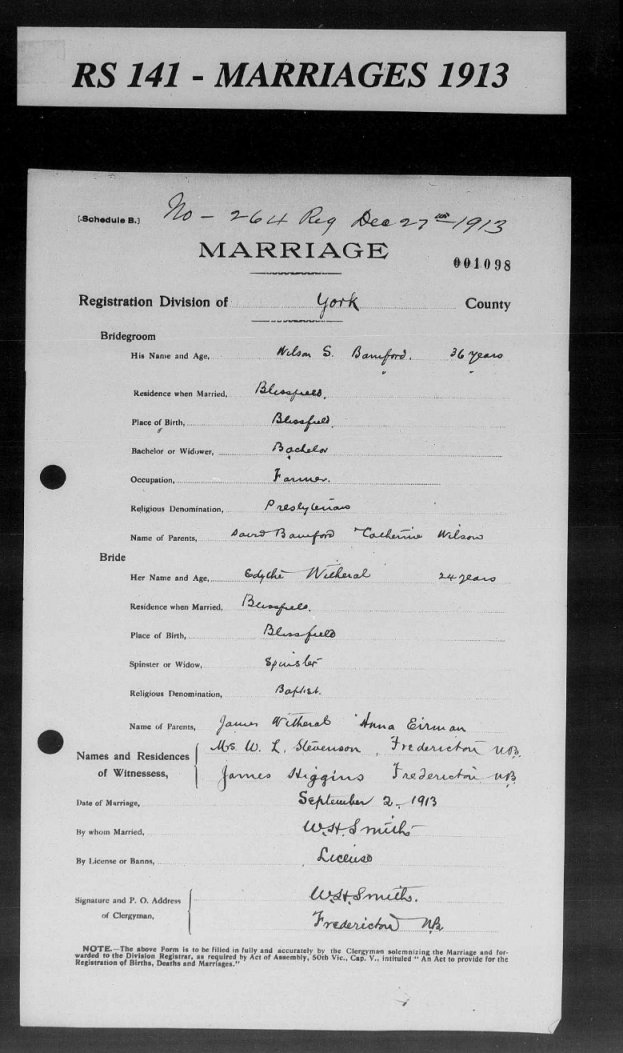 RS 141 - MARRIAGES 1913
[Schedule B.] No - 264 Reg Dec 27 - 1913
MARRIAGE
001098
Registration Division of York County
Bridegroom
His Name and Age, Wilson S. Bamford. 36 years
Residence when Married, Blissfield.
Place of Birth, Blissfield
Bachelor or Widower, Bachelor
Occupation, Farmer.
Religious Denomination, Presbyterian
Name of Parents, David Bamford Catherine Wilson
Bride
Her Name and Age, Edythe Witheral 24 years
Residence when Married, Blissfield.
Place of Birth, Blissfield
Spinster or Widow, Spinster
Religious Denomination, Baptist.
Name of Parents, James Witheral Anna Eirman
Names and Residences of Witnessess, Mrs W. L. Stevenson, Fredericton NB.
James Higgins Fredericton NB
Date of Marriage, September 2, 1913
By whom Married, W. H. Smith
By License or Banns, License
Signature and P. O. Address of Clergyman, W. H. Smith.
Fredericton NB
NOTE.—The above Form is to be filled in fully and accurately by the Clergyman solemnizing the Marriage and for-
warded to the Division Registrar, as required by Act of Assembly, 50th Vic., Cap. V., intituled "An Act to provide for the
Registration of Births, Deaths and Marriages."